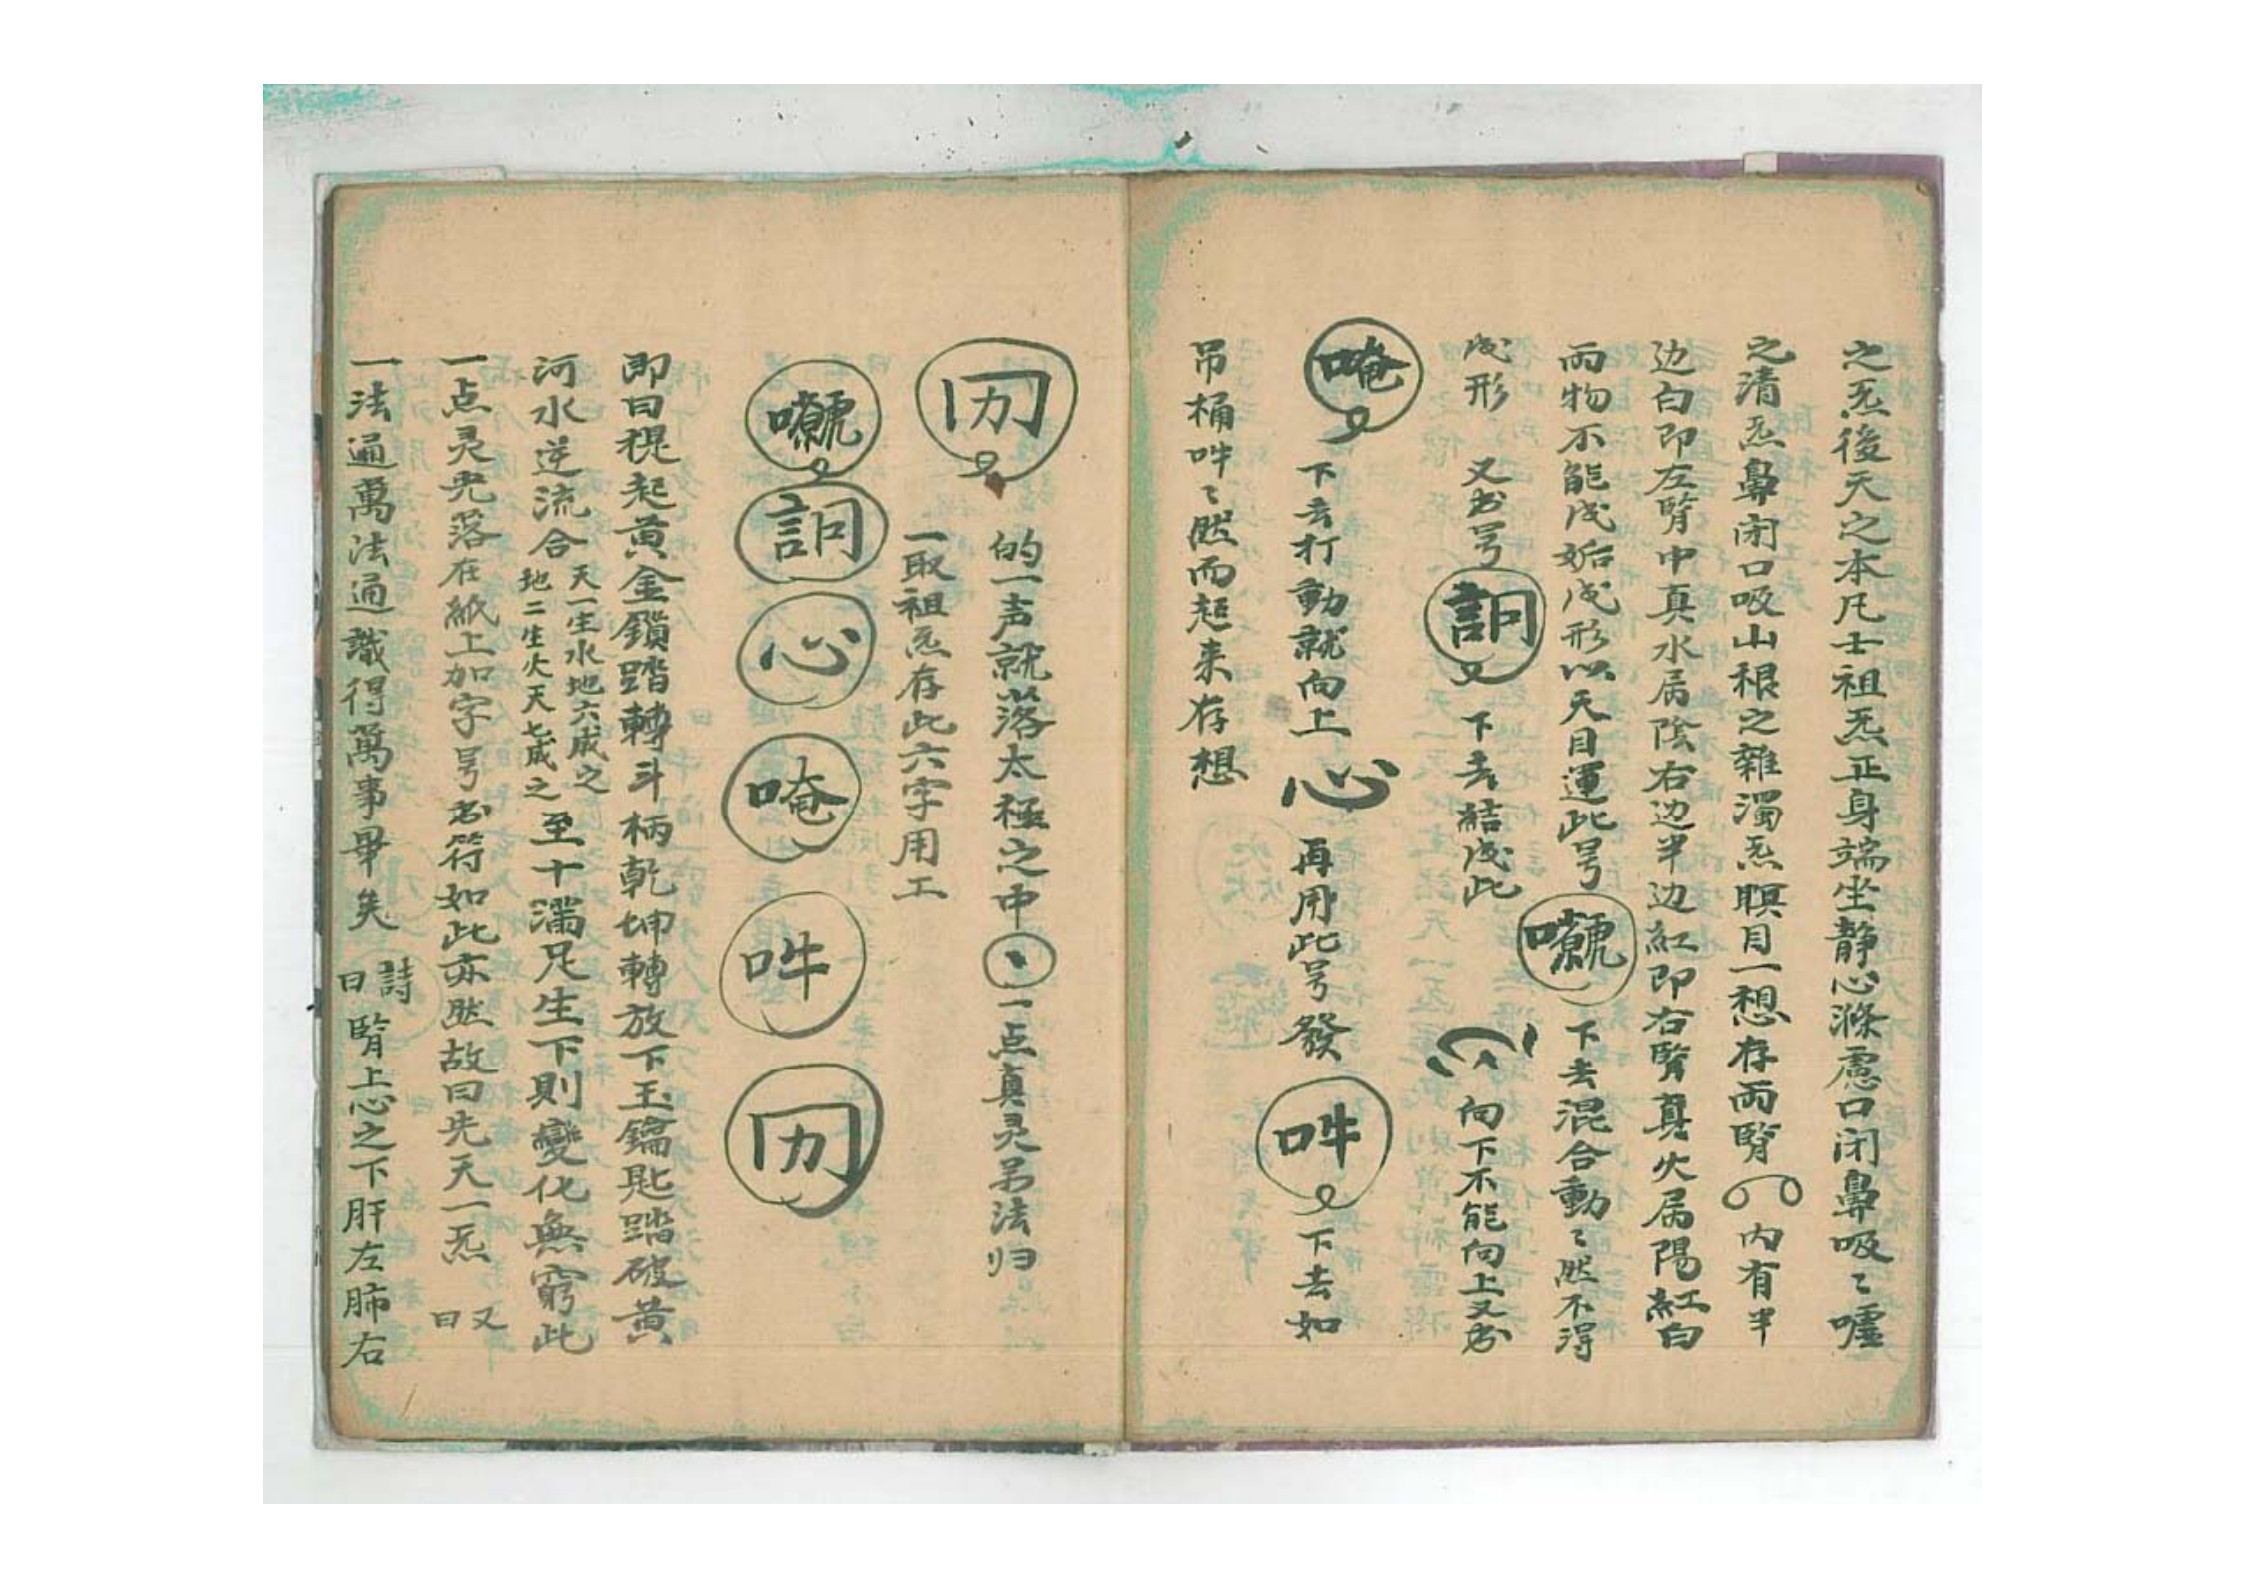 之炁後天之本凡士祖炁正身端坐静心滌慮口闭鼻吸〻嘘
之清炁鼻闭口吸山根之雜濁炁瞑目一想存两腎 内有半
边白即左腎中真水属陰右边半边紅即右腎真火属陽紅白
两物不能成姤成形以天目運此号 下去混合動〻然不得
成形 又书号 訶 下去結成此 向下不能向上又书
唵 下去打動就向上 心 再用此号發 吽 下去如
吊桶吽〻然而起来存想
囬 的一声就落太極之中 丶 一点真灵吊法归
一取祖炁存此六字用工
訶 心 唵 吽
即曰提起黄金鎖踏轉斗柄乾坤轉放下玉鑰匙踏破黄
河水逆流合 天一生水地六成之 地二生火天七成之 至十滿足生下則變化無窮此
一点灵光落在紙上加字号书符如此亦然故曰先天一炁 又曰
一法通萬法通識得萬事畢矣 詩曰 腎上心之下肝左肺右